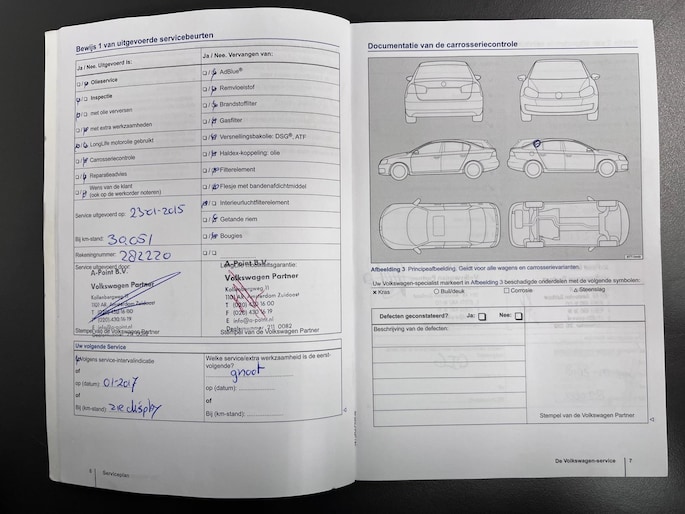 Bewijs 1 van uitgevoerde servicebeurten
Ja / Nee. Uitgevoerd is:
Olieservice
Inspectie
met olie verversen
met extra werkzaamheden
LongLife motorolie gebruikt
Carrosseriecontrole
Reparatieadvies
Wens van de klant
(ook op de werkorder noteren)
Service uitgevoerd op: 23-01-2015
Bij km-stand: 30.051
Rekeningnummer: 282220
Service uitgevoerd door:
A-Point B.V.
Volkswagen Partner
Kollenbergweg 11
1101 AR Amsterdam Zuidoost
T (020) 430 16 00
F (020) 430 16 19
E info@a-point.nl
Dealernummer: 211 0082
Stempel van de Volkswagen Partner
Ja / Nee. Vervangen van:
AdBlue®
Remvloeistof
Brandstoffilter
Gasfilter
Versnellingsbakolie: DSG®, ATF
Haldex-koppeling: olie
Filterelement
Flesje met bandenafdichtmiddel
Interieurluchtfilterelement
Getande riem
Bougies
LongLife mobiliteitsgarantie:
A-Point B.V.
Volkswagen Partner
Kollenbergweg 11
1101 AR Amsterdam Zuidoost
T (020) 430 16 00
F (020) 430 16 19
E info@a-point.nl
Dealernummer: 211 0082
Stempel van de Volkswagen Partner
Uw volgende Service
Volgens service-intervalindicatie
of
op (datum): 01-2017
of
Bij (km-stand): zie display
Welke service/extra werkzaamheid is de eerst-
volgende? groot
op (datum):
of
Bij (km-stand):
8 Serviceplan
Documentatie van de carrosseriecontrole
Afbeelding 3 Principeafbeelding. Geldt voor alle wagens en carrosserievarianten.
Uw Volkswagen-specialist markeert in Afbeelding 3 beschadigde onderdelen met de volgende symbolen:
× Kras ○ Buil/deuk □ Corrosie △ Steenslag
Defecten geconstateerd? Ja: Nee:
Beschrijving van de defecten:
Stempel van de Volkswagen Partner
De Volkswagen-service 7